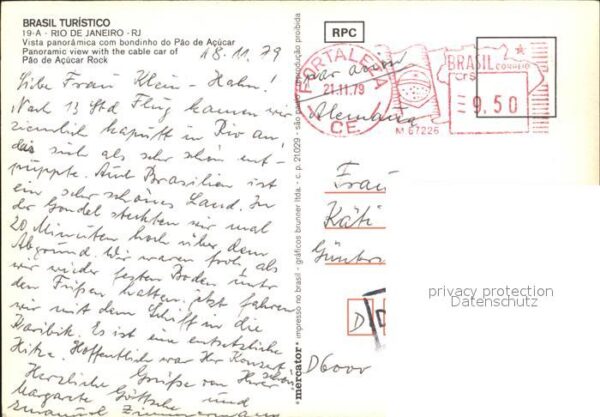 BRASIL TURÍSTICO
19-A - RIO DE JANEIRO - RJ
Vista panorâmica com bondinho do Pão de Açúcar
Panoramic view with the cable car of
Pão de Açúcar Rock
18.11.79
Liebe Frau Klein-Hahn!
Nach 13 Std Flug kamen wir
ziemlich kaputt in Rio an,
das sich als sehr schön ent-
puppte. Auch Brasilien ist
ein sehr schönes Land. In
der Gondel steckten wir mal
20 Minuten hoch über dem
Abgrund. Wir waren froh als
wir wieder festen Boden unter
den Füßen hatten. Jetzt fahren
wir mit dem Schiff in die
Karibik. Es ist eine entsetzliche
Hitze. Hoffentlich war Ihr Konzert schön
Herzliche Grüße von Ihrer
Margarete Göttsche und
Zimmermann
mercator® impresso no brasil - gráficos brunner ltda. - c.p. 21.029 - são paulo reprodução proibida
RPC
FORTALEZA
21.11.79
CE
BRASIL CORREIO
CR$
9,50
M 67226
par avion
Alemanha
Frau
Käti
D
D6000
privacy protection
Datenschutz